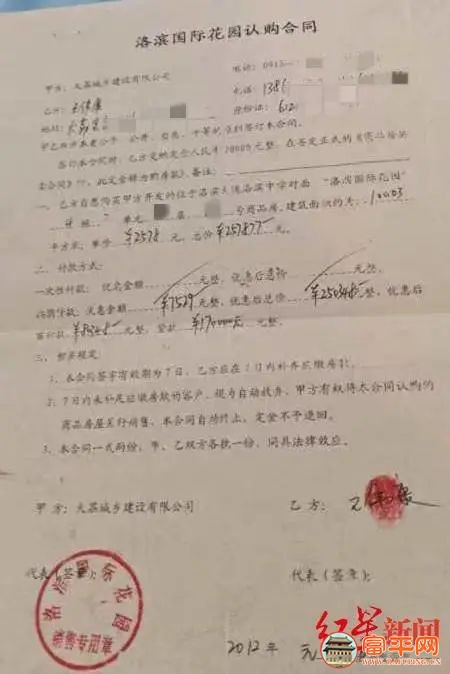 洛滨国际花园认购合同
甲方:大荔城乡建设有限公司
电话:0913-
乙方:
电话:138
地址:
身份证:612
甲乙双方本着公平、公开、自愿、平等的原则签订本合同。
签订本合同时,乙方交纳定金人民币20000元整,在签定正式的《商品房买
卖合同》时,此定金转为购房款。备注:
一、乙方自愿购买甲方开发的位于洛滨大道洛滨中学对面“洛滨国际花园”
单元 层 号商品房,建筑面积约为:100.03
平方米,单价 ¥2578 元,总价 ¥257877 元。
二、付款方式:
一次性付款:优惠金额 元整,优惠后总价 元整。
按揭贷款:优惠金额 ¥7529 元整,优惠后总价 ¥250348 元整,优惠后
首付款 元整,贷款 ¥170000 元整。
三、郑重规定:
1、本合同签字有效期为7日,乙方应在7日内补齐应缴房款。
2、7日内未补足应缴房款的客户,视为自动放弃,甲方有权将本合同认购的
商品房屋另行销售,本合同自动终止,定金不予退回。
3、本合同一式两份,甲、乙双方各执一份,同具法律效应。
甲方:大荔城乡建设有限公司
乙方:
代表(签章):
代表(签章):
洛滨国际花园
销售专用章
2012年 元
红星新闻
富平网